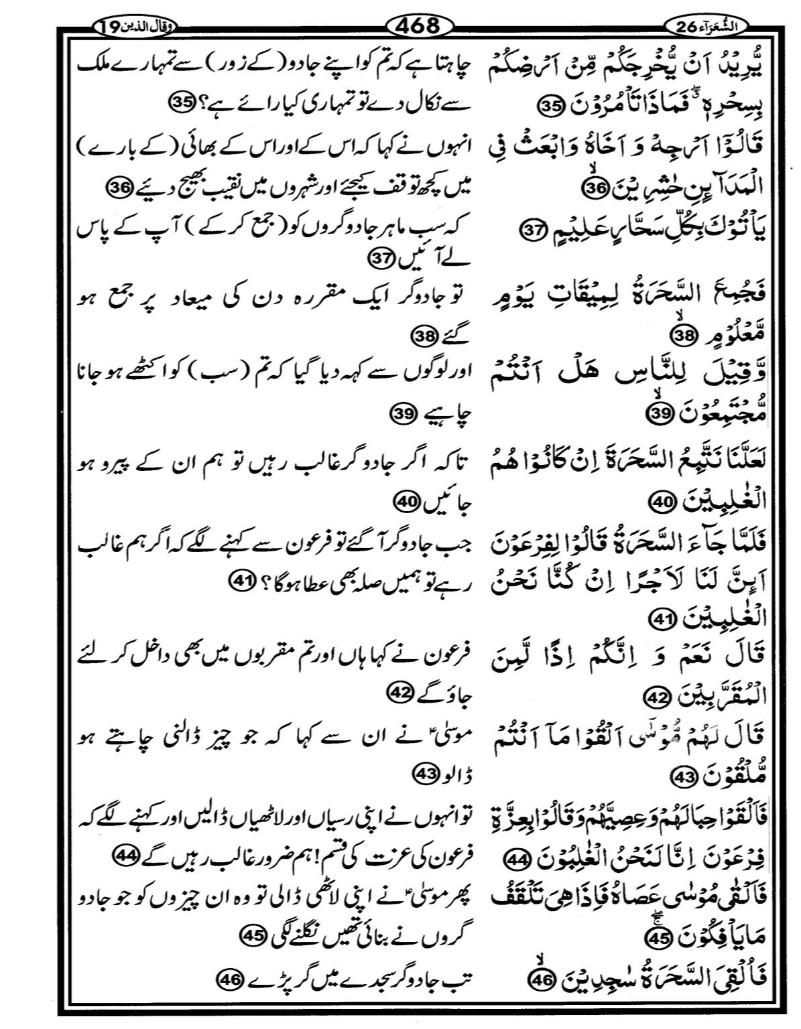 الشُّعَرَآء 26
468
وقال الذین 19
يُّرِيْدُ اَنْ يُّخْرِجَكُمْ مِّنْ اَرْضِكُمْ
بِسِحْرِهٖ ۖ فَمَاذَا تَاْمُرُوْنَ 35
قَالُوْۤا اَرْجِهْ وَ اَخَاهُ وَ ابْعَثْ فِى
الْمَدَآىِٕنِ حٰشِرِيْنَ ۙ 36
يَاْتُوْكَ بِكُلِّ سَحَّارٍ عَلِيْمٍ 37
فَجُمِعَ السَّحَرَةُ لِمِيْقَاتِ يَوْمٍ
مَّعْلُوْمٍ ۙ 38
وَّقِيْلَ لِلنَّاسِ هَلْ اَنْتُمْ
مُّجْتَمِعُوْنَ ۙ 39
لَعَلَّنَا نَتَّبِعُ السَّحَرَةَ اِنْ كَانُوْا هُمُ
الْغٰلِبِيْنَ 40
فَلَمَّا جَآءَ السَّحَرَةُ قَالُوْا لِفِرْعَوْنَ
اَىِٕنَّ لَنَا لَاَجْرًا اِنْ كُنَّا نَحْنُ
الْغٰلِبِيْنَ 41
قَالَ نَعَمْ وَ اِنَّكُمْ اِذًا لَّمِنَ
الْمُقَرَّبِيْنَ 42
قَالَ لَهُمْ مُّوْسٰۤى اَلْقُوْا مَاۤ اَنْتُمْ
مُّلْقُوْنَ 43
فَاَلْقَوْا حِبَالَهُمْ وَ عِصِيَّهُمْ وَ قَالُوْا بِعِزَّةِ
فِرْعَوْنَ اِنَّا لَنَحْنُ الْغٰلِبُوْنَ 44
فَاَلْقٰى مُوْسٰى عَصَاهُ فَاِذَا هِىَ تَلْقَفُ
مَا يَاْفِكُوْنَ ۚۖ 45
فَاُلْقِىَ السَّحَرَةُ سٰجِدِيْنَ ۙ 46
چاہتا ہے کہ تم کو اپنے جادو (کے زور) سے تمہارے ملک
سے نکال دے تو تمہاری کیا رائے ہے؟ 35
انہوں نے کہا کہ اس کے اور اس کے بھائی (کے بارے)
میں کچھ توقف کیجئے اور شہروں میں نقیب بھیج دیئے 36
کہ سب ماہر جادوگروں کو (جمع کر کے) آپ کے پاس
لے آئیں 37
تو جادوگر ایک مقررہ دن کی میعاد پر جمع ہو
گئے 38
اور لوگوں سے کہہ دیا گیا کہ تم (سب) کو اکٹھے ہو جانا
چاہیے 39
تاکہ اگر جادوگر غالب رہیں تو ہم ان کے پیرو ہو
جائیں 40
جب جادوگر آگئے تو فرعون سے کہنے لگے کہ اگر ہم غالب
رہے تو ہمیں صلہ بھی عطا ہوگا؟ 41
فرعون نے کہا ہاں اور تم مقربوں میں بھی داخل کر لئے
جاؤ گے 42
موسیٰؑ نے ان سے کہا کہ جو چیز ڈالنی چاہتے ہو
ڈالو 43
تو انہوں نے اپنی رسیاں اور لاٹھیاں ڈالیں اور کہنے لگے کہ
فرعون کی عزت کی قسم! ہم ضرور غالب رہیں گے 44
پھر موسیٰؑ نے اپنی لاٹھی ڈالی تو وہ ان چیزوں کو جو جادو
گروں نے بنائی تھیں نگلنے لگی 45
تب جادوگر سجدے میں گر پڑے 46